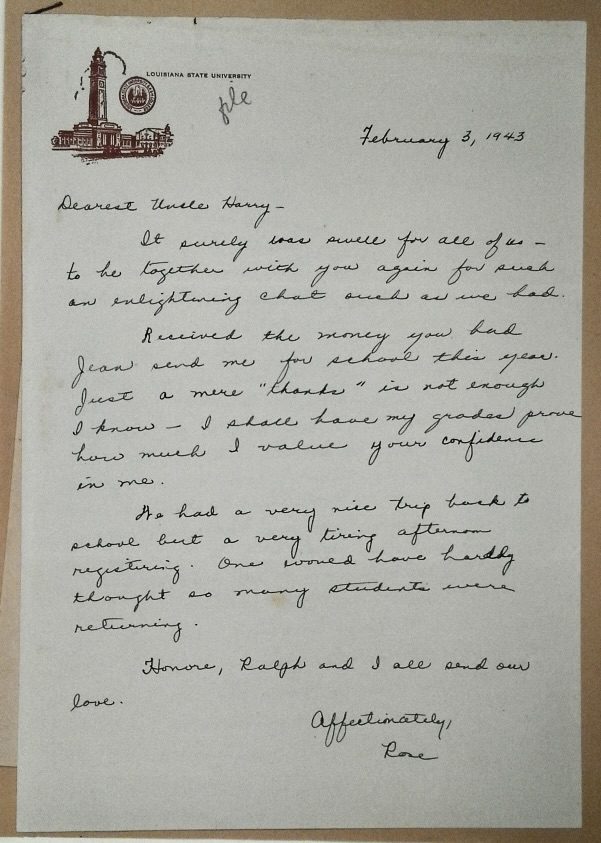 LOUISIANA STATE UNIVERSITY
file
February 3, 1943
Dearest Uncle Harry –
It surely was swell for all of us –
to be together with you again for such
an enlightening chat such as we had.
Received the money you had
Jean send me for school this year.
Just a mere "thanks" is not enough
I know – I shall have my grades prove
how much I value your confidence
in me.
We had a very nice trip back to
school but a very tiring afternoon
registering. One would have hardly
thought so many students were
returning.
Honore, Ralph and I all send our
love.
Affectionately,
Rose